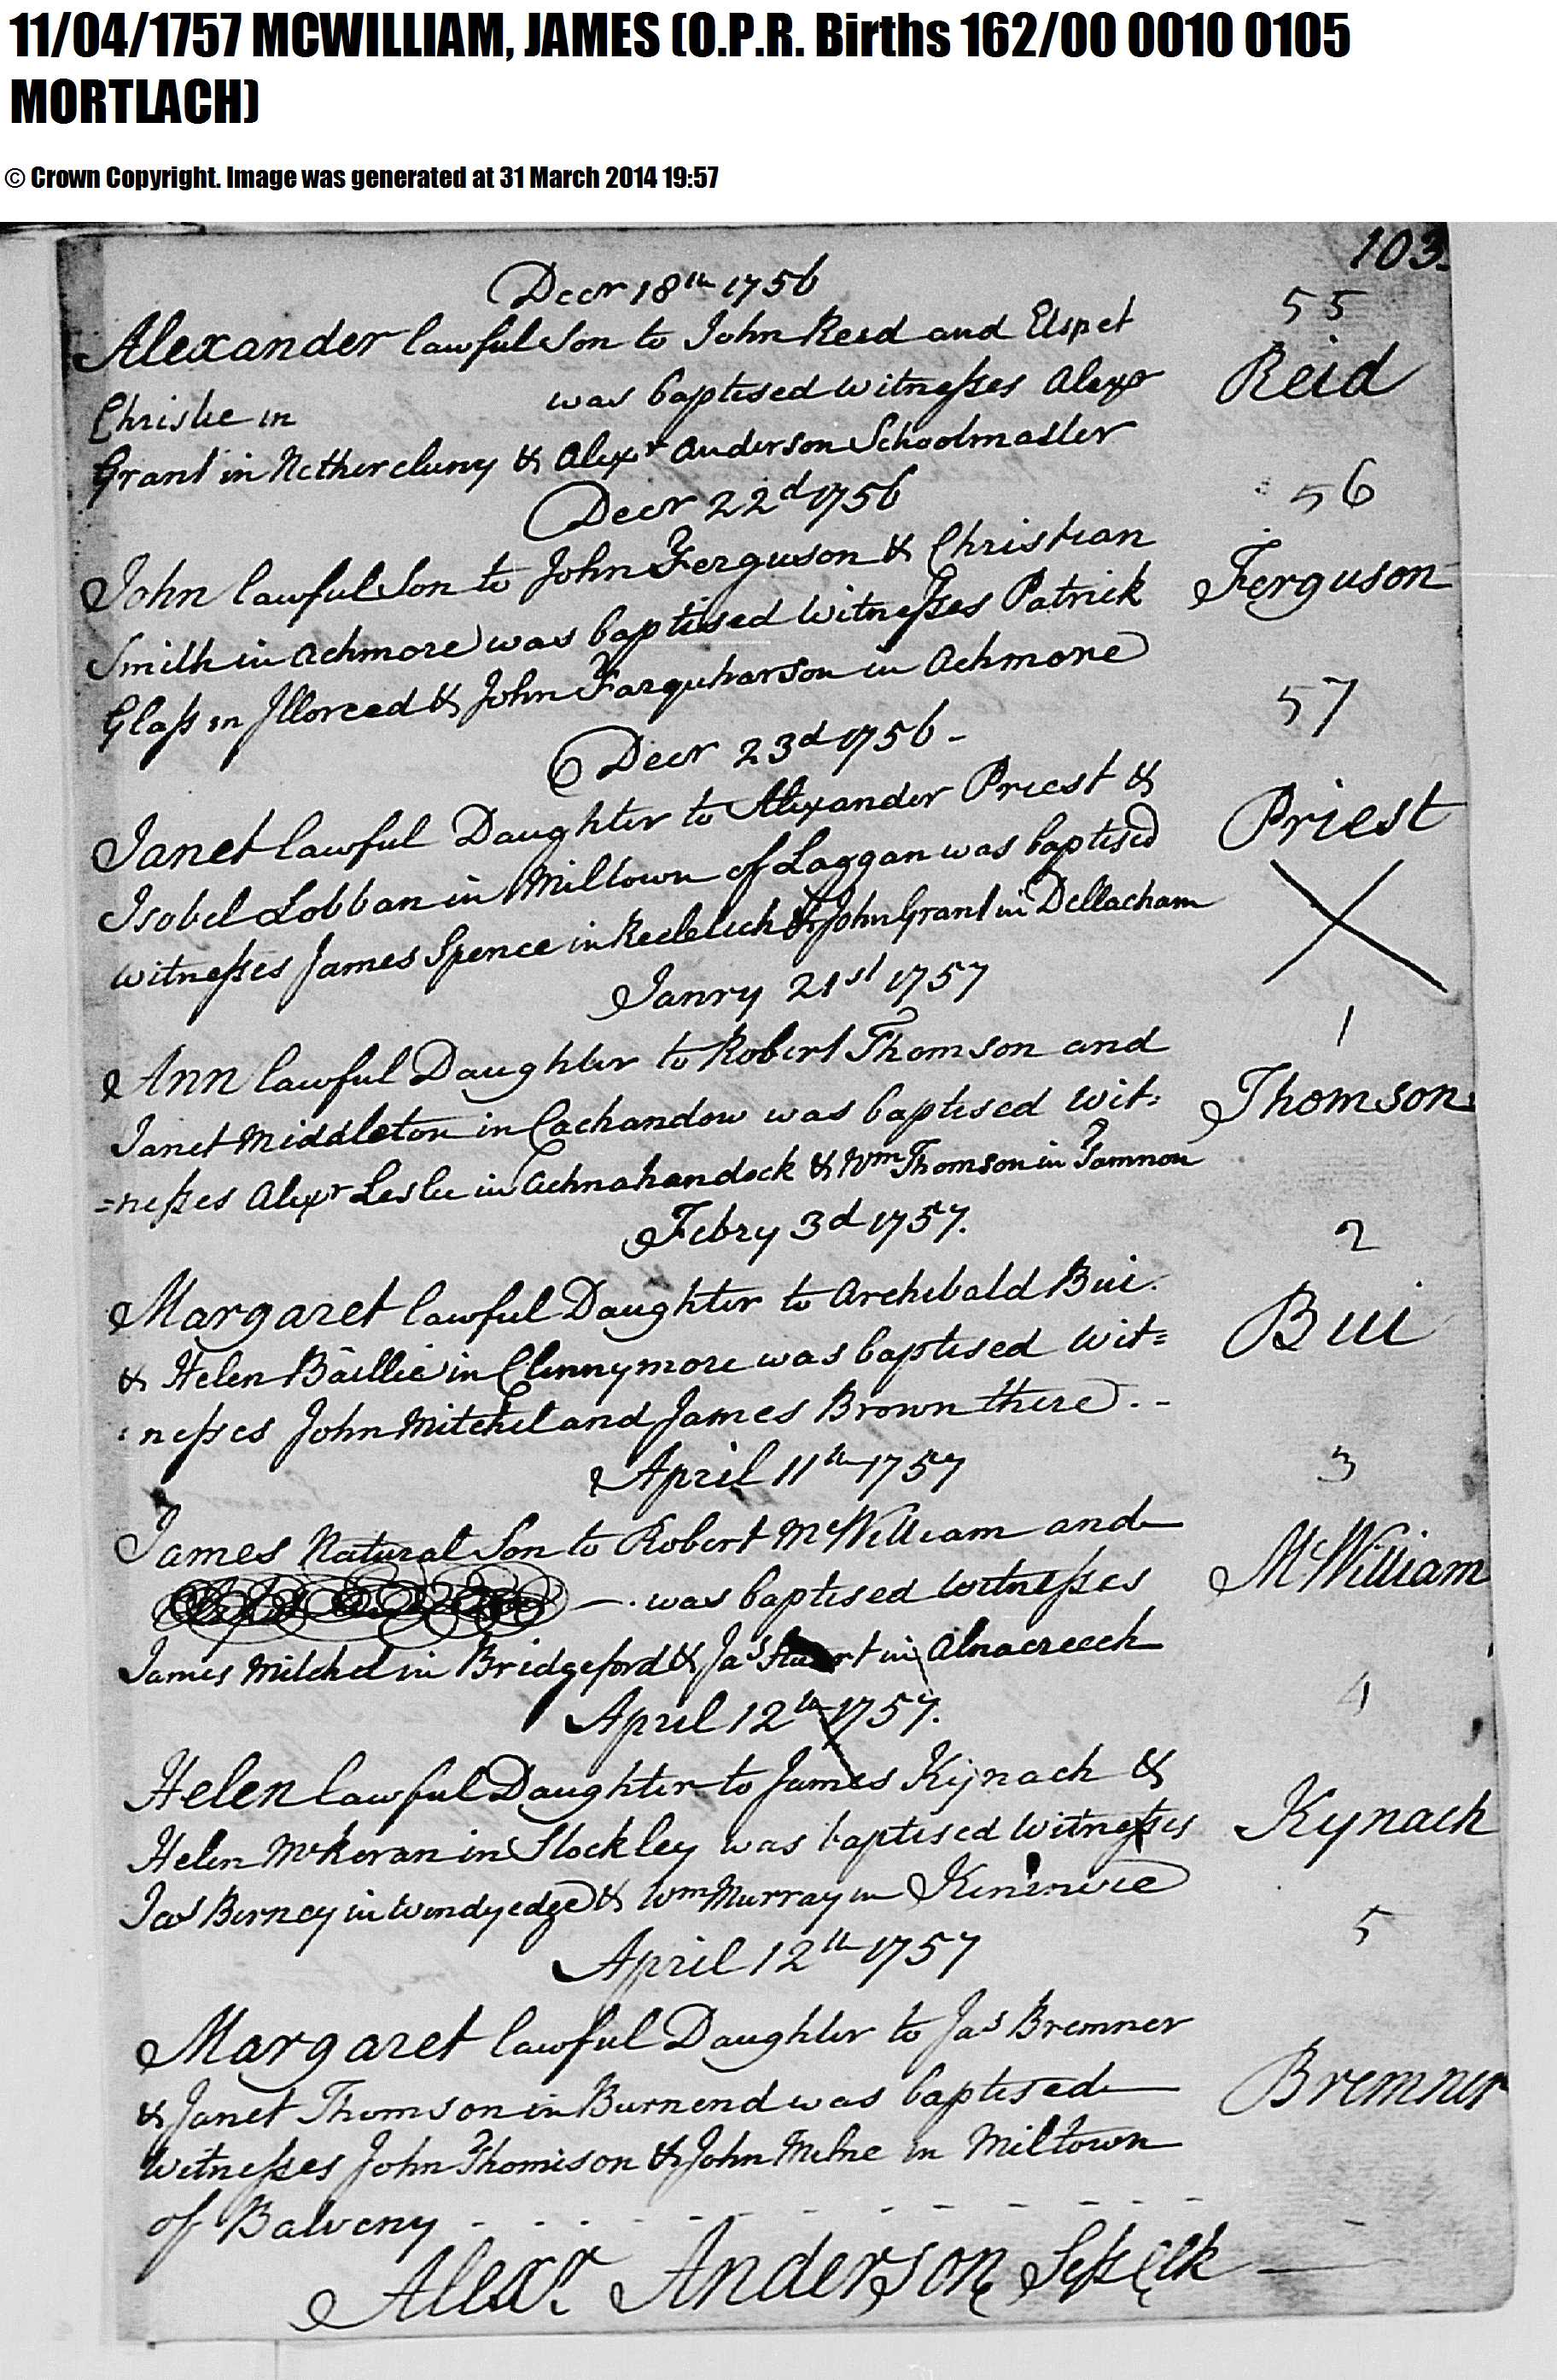 11/04/1757 MCWILLIAM, JAMES (O.P.R. Births 162/00 0010 0105
MORTLACH)
© Crown Copyright. Image was generated at 31 March 2014 19:57
103.
Decr 18th 1756
55
Alexander lawful Son to John Reid and Elspet
Reid
Christie in was baptised witnesses Alexr
Grant in Nethercluny & Alexr Anderson Schoolmaster
Decr 22d 1756
56
John lawful Son to John Ferguson & Christian
Ferguson
Smith in Achmore was baptised Witnesses Patrick
Glass in & John Farquharson in Achmore
57
Decr 23d 1756 -
Janet lawful Daughter to Alexander Priest &
Priest
Isobel Lobban in Miltown of Laggan was baptised
witnesses James Spence in & John Grant in Dellacham
Janry 21st 1757
1
Ann lawful Daughter to Robert Thomson and
Thomson
Janet Middleton in Lachandow was baptised Wit=
=nesses Alexr Leslie in Achnahandock & Wm Thomson in Tamnon
Febry 3d 1757.
2
Margaret lawful Daughter to Archibald Bui
Bui
& Helen Baillie in Clunnymore was baptised Wit=
=nesses John Mitchel and James Brown there. -
April 11th 1757
3
James Natural Son to Robert McWilliam and
McWilliam
was baptised witnesses
James Mitchel in Bridgeford & Jas Stuart in
April 12th 1757.
4
Helen lawful Daughter to James Kynach &
Kynach
Helen McKeran in Stockley was baptised Witnesses
Jas Birney in Windyedge & Wm Murray in Keninvie
5
April 12th 1757
Margaret lawful Daughter to Jas Bremner
Bremner
& Janet Thomson in Burnend was baptised
Witnesses John Thomson & John Milne in Miltown
of Balveny
Alexr Anderson Sess Clk